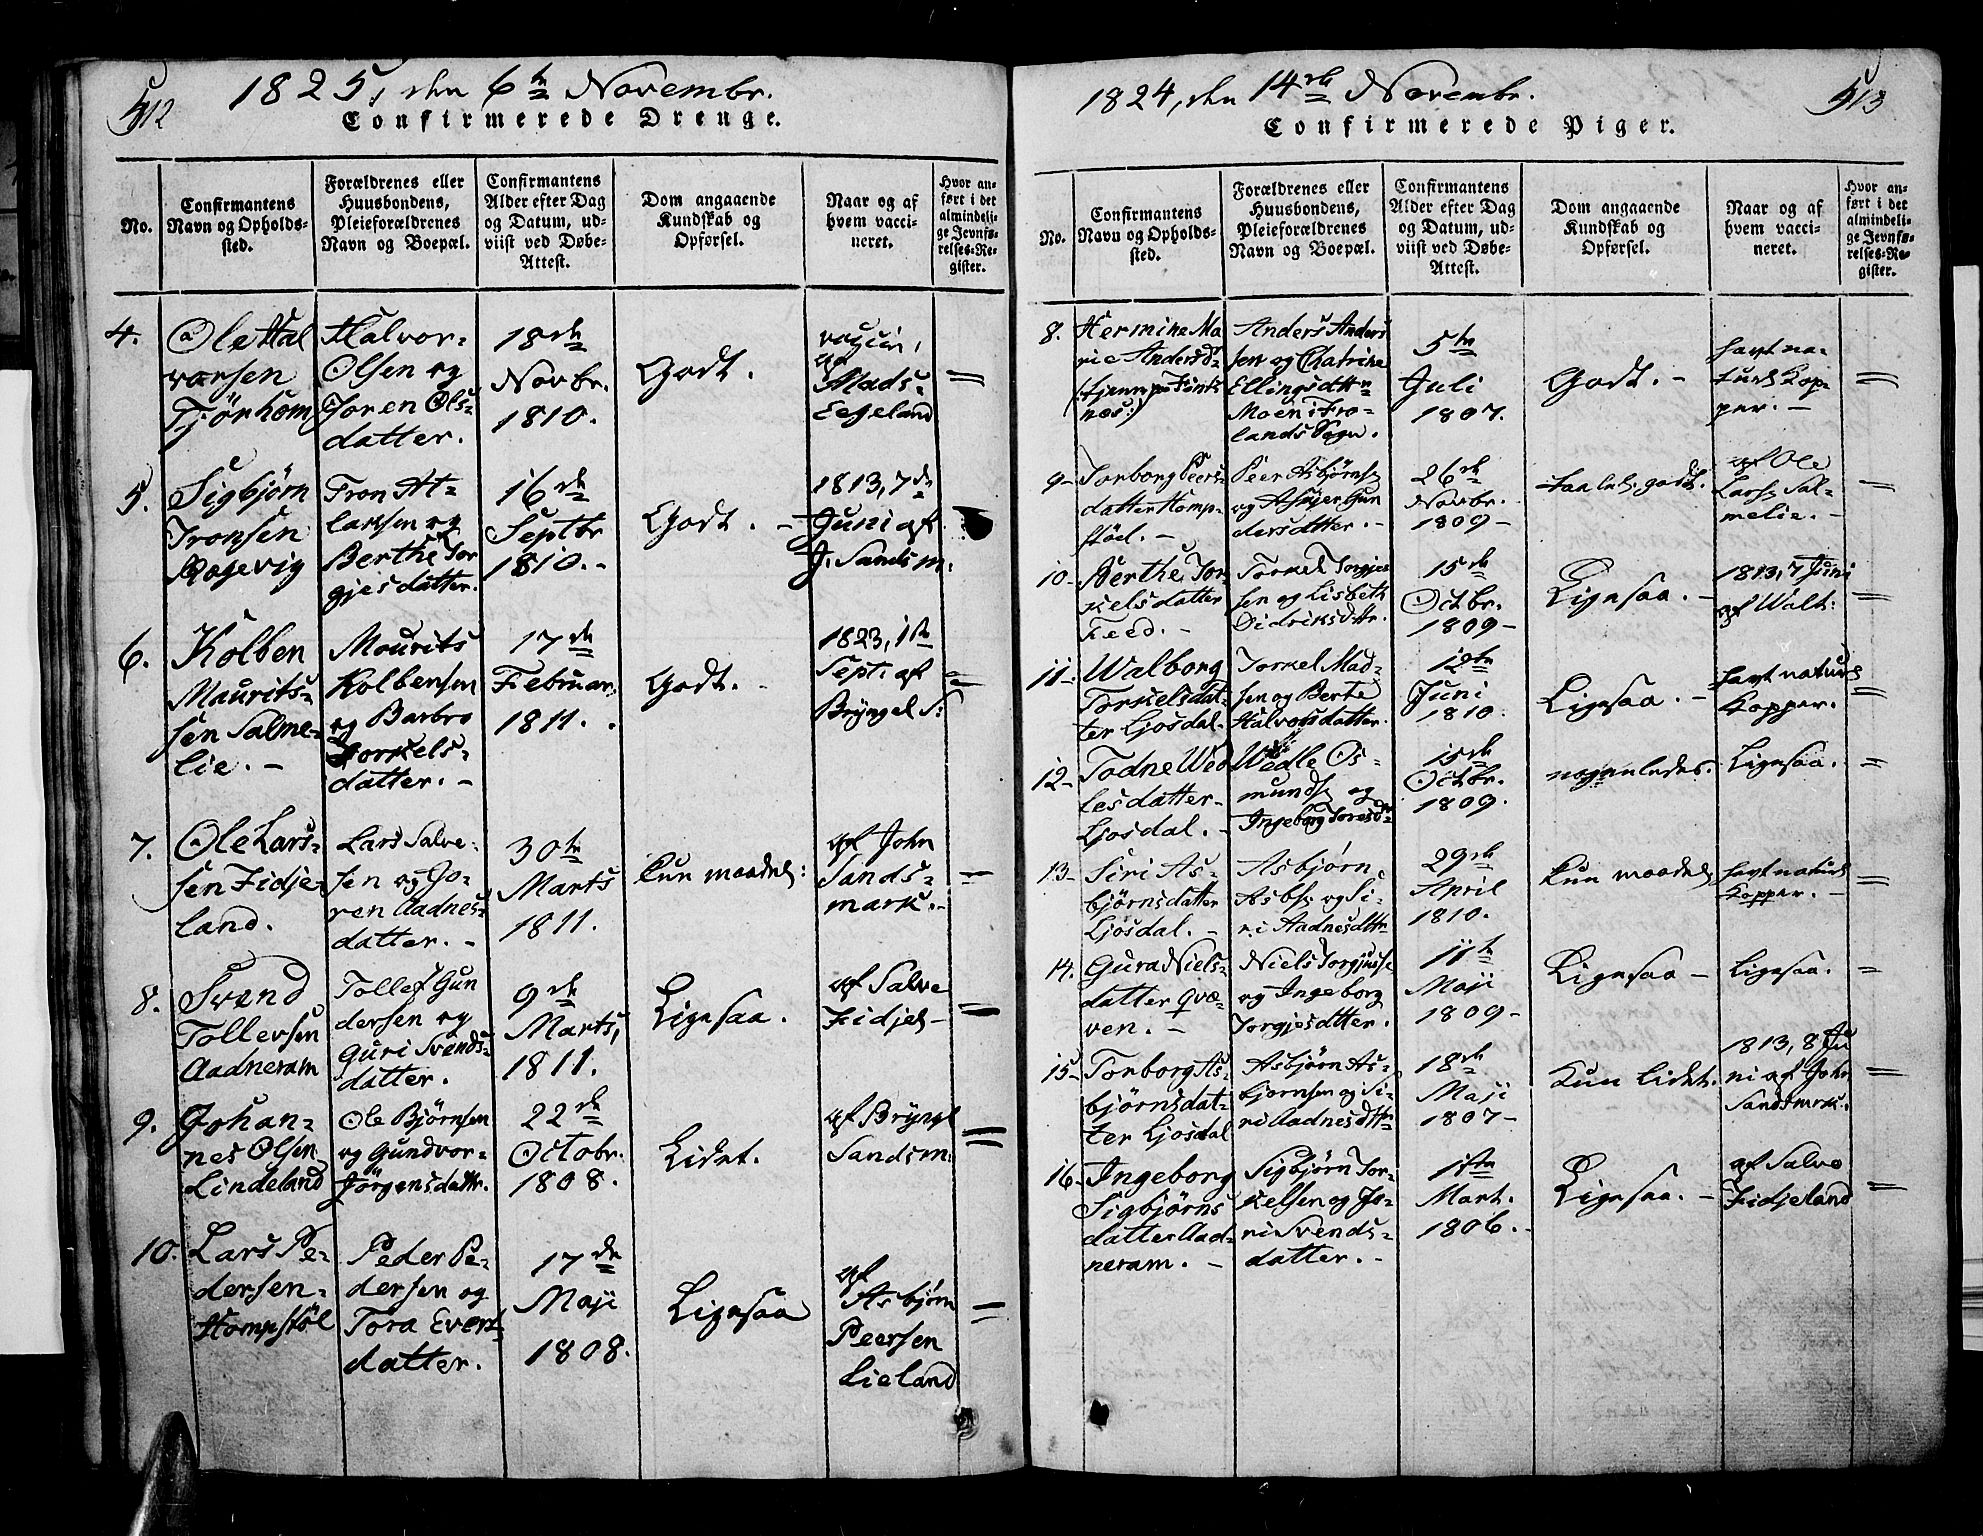 512
1825, den 6te Novembr.
Confirmerede Drenge.
No.
Confirmantens
Navn og Opholds-
sted.
Forældrenes eller
Huusbondens,
Pleieforældrenes
Navn og Boepæl.
Confirmantens
Alder efter Dag
og Datum, ud-
viist ved Døbe-
Attest.
Dom angaaende
Kundskab og
Opførsel.
Naar og af
hvem vacci-
neret.
Hvor an-
ført i det
almindeli-
ge Jevnfø-
relses-Re-
gister.
4.
Ole Hal
vorsen
Tjørhom
Halvor-
Olsen og
Joren Ols-
datter.
18de
Novbr.
1810.
Godt.
vaccin,
af
Mads-
Eegeland
5.
Sigbjørn
Tronsen
Tron At-
laksen og
Berthe Tor
gjesdatter.
16de
Septbr
1810.-
Godt. -
1813, 7de
Juni af
J. Sandsm.
6.
Kolben
Maurits-
sen Salme-
lie. -
Mourits
Kolbensen
og Barbro
Torkels-
datter. -
17de
Februar.
1811.
Godt. -
1823, 1ste
Sept. af
Bryngel S:
7.
Ole Lars-
sen Fidje-
land.
Lars Salve-
sen og Jo-
ren Aadnes-
datter. -
30te
Marts
1811.
Kun maadel:
af John
Sands-
mark.-
8.
Svend
Tollevsen
Aadneram
Tollef Gun
dersen og
Guri Svends-
datter.
9de
Marts,
1811.
Ligesaa.
af Salve
Fidjel-
9.
Johan-
nes Olsen
Lindeland
Ole Bjørnsen
og Gundvor-
Jørgensdattr.
22de
Octobr.
1808.
Lidet.
af Bryngl
Sandsm:
10.
Lars Pe-
dersen-
Hompstøl
Peder Pe-
dersen og
Tora Evert-
datter.
17de
Maji
1808.
Ligesaa
af
Asbjørn
Peersen
Lieland
513
1824, den 14de Novembr.
Confirmerede Piger.
No.
Confirmantens
Navn og Opholds-
sted.
Forældrenes eller
Huusbondens,
Pleieforældrenes
Navn og Boepæl.
Confirmantens
Alder efter Dag
og Datum, ud-
viist ved Døbe-
Attest.
Dom angaaende
Kundskab og
Opførsel.
Naar og af
hvem vacci-
neret.
Hvor an-
ført i det
almindeli-
ge Jevnfø-
relses-Re-
gister.
8.
Hermine Ma
rie Andersd-
Anders Anders
sen og Chatrine
Ellingsdttr
Moen i Fro-
lands Sogn.
5te
Juli
1807.
Godt. -
havt na-
turl. Kop-
per. -
9-
Torborg Peers-
datter Homp-
støl. -
Peer Asbjørns
og Gun
dersdatter. -
26de
Novbr.
1809-
taalel. godt.
af Ole
Lars Sal-
melie. -
10-
Berthe Tor
kelsdatter
Feed. -
Torkel Torgjes
sen og Lisbeth
Didriksdttr.
15de
Octbr.
1809-
Ligesaa. -
1813, 7 Juni
af Walt:
11-
Walborg
Torkelsdat-
ter Ljosdal.
Torkel Mad-
sen og Berte
Halvorsdatter.
12te
Juni
1810.
Ligesaa. -
havt naturl
Kopper.
12-
Todne Wed
lesdatter-
Ljosdal. -
Wedle Os-
munds og
Ingeborg Toresd-
15de
Octbr.
1809.
nogenledes.
Ligesaa.
13-
Siri As-
bjørnsdatter
Ljosdal. -
Asbjørn
Asbs. og Si-
ri Aadnesdttr
29de
April
1810.
Kun maadel.
havt naturl
Kopper. -
14.
Gura Niels-
datter Qvæ-
ven. -
Niels Torgjusse
og Ingeborg
Torgjesdtter.
11te
Maji
1809-
Ligesaa -
Ligesaa.
15-
Torborg As-
bjørnsdat-
ter Ljosdal
Asbjørn As-
bjørnsen og Si-
ri Aadnesdttr
18de
Maji
1807-
Kun lidet.
1813, 8 Ju
ni af John
Sandsmrk.
16-
Ingeborg
Sigbjørns
datter Aad-
neram. -
Sigbjørn Tor-
kelsen og Jo-
ri Svends-
datter. -
1ste
Mart.
1806. -
Ligesaa. -
af Salve
Fidjeland